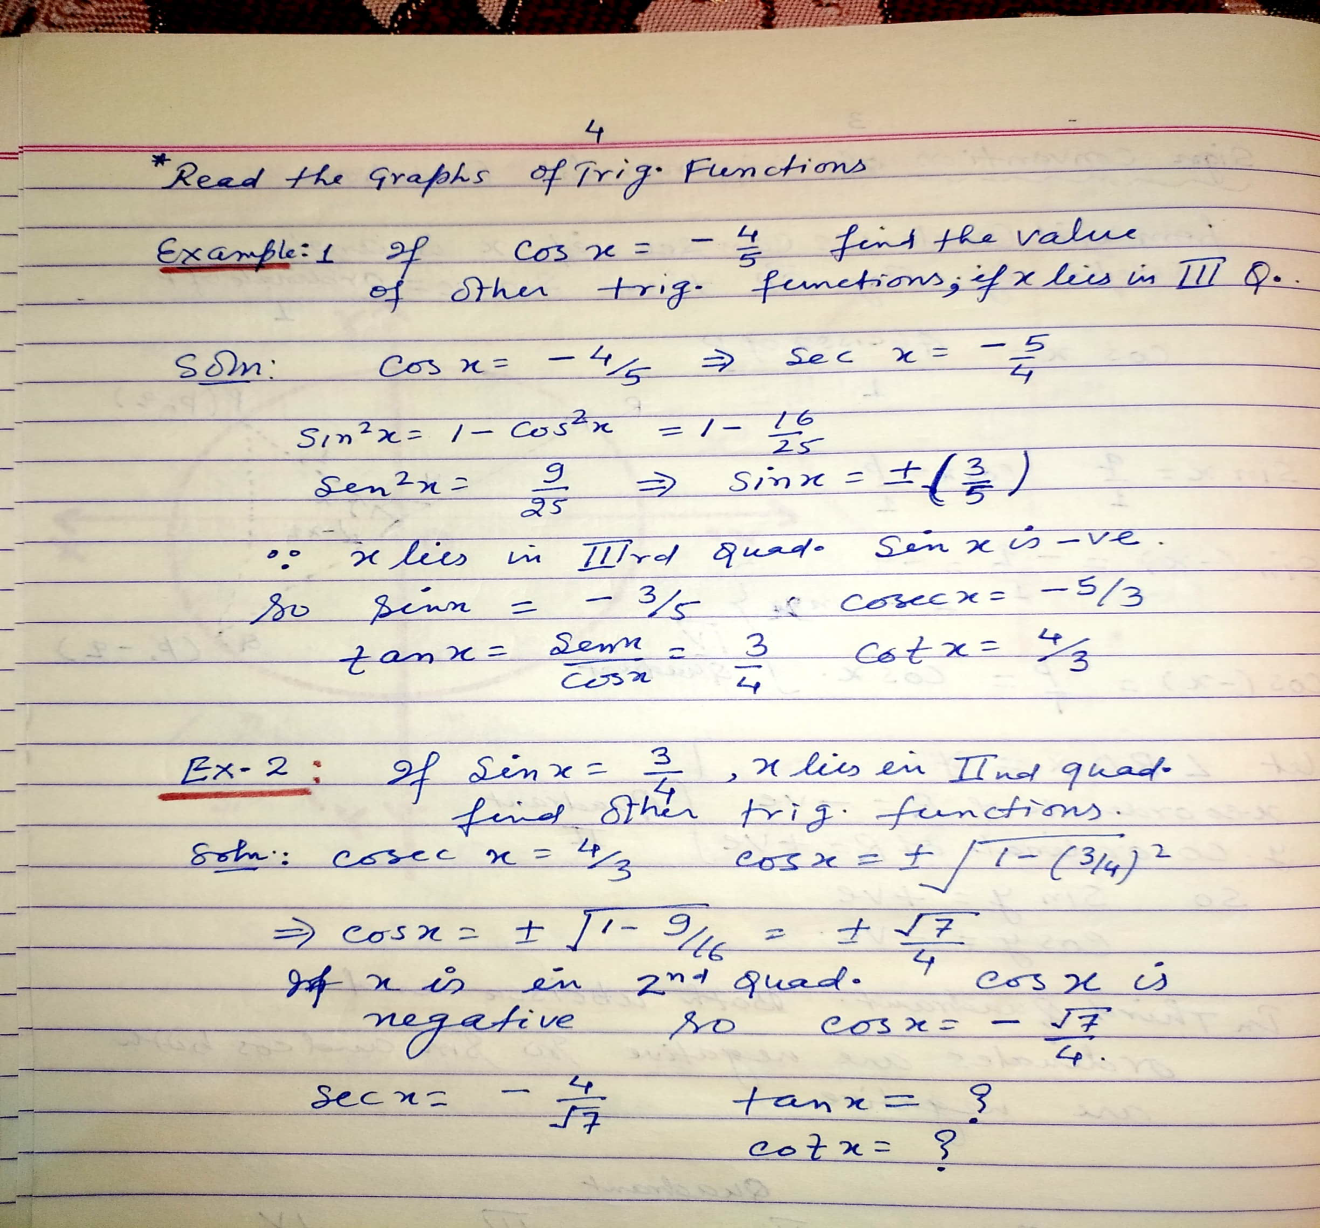 4
*Read the Graphs of Trig. Functions
Example:1 If cos x = - 4/5 find the value
of other trig. functions; if x lies in III Q.
Soln: cos x = - 4/5 ⇒ sec x = - 5/4
sin²x = 1 - cos²x = 1 - 16/25
sin²x = 9/25 ⇒ sinx = ± (3/5)
∵ x lies in IIIrd quad. Sin x is -ve.
So sinx = - 3/5 & cosecx = -5/3
tanx = sinx/cosx = 3/4 cotx = 4/3
Ex-2: If Sinx = 3/4, x lies in IInd quad.
find other trig. functions.
Soln: cosec x = 4/3 cosx = ± √1-(3/4)²
⇒ cosx = ± √1-9/16 = ± √7/4
If x is in 2nd quad. cosx is
negative so cosx = - √7/4.
secx = - 4/√7 tanx = ?
cotx = ?